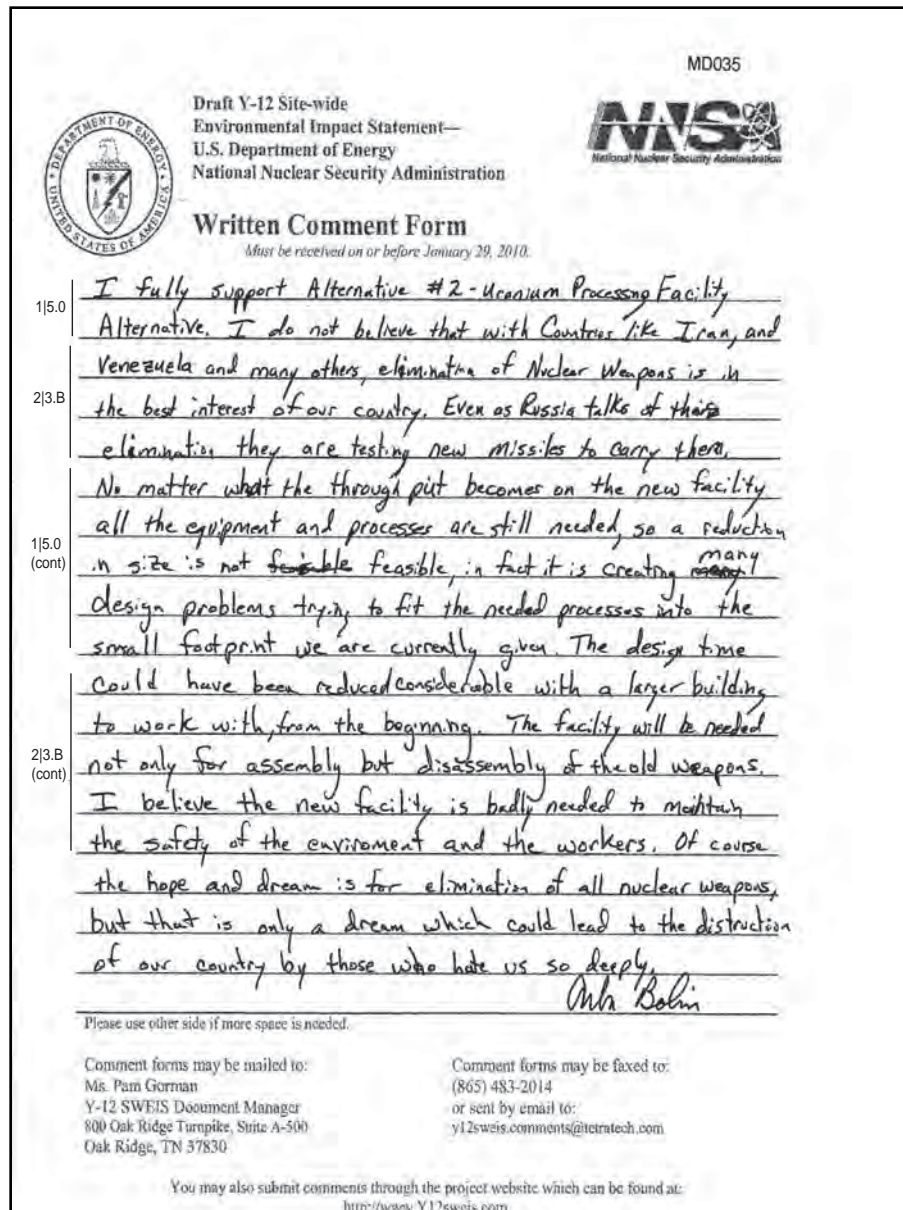 MD035
Draft Y-12 Site-wide
Environmental Impact Statement—
U.S. Department of Energy
National Nuclear Security Administration
DEPARTMENT OF ENERGY
UNITED STATES OF AMERICA
NNSA
National Nuclear Security Administration
Written Comment Form
Must be received on or before January 29, 2010.
1|5.0
I fully support Alternative #2 - Uranium Processng Facility
Alternative. I do not believe that with Countries like Iran, and
2|3.B
Venezuela and many others, elimination of Nuclear Weapons is in
the best interest of our country. Even as Russia talks of
elimination they are testing new missiles to carry them.
1|5.0
(cont)
No matter what the through put becomes on the new facility
all the equipment and processes are still needed, so a reduction
in size is not feasible, in fact it is creating many
design problems trying to fit the needed processes into the
small footprint we are currently given. The design time
2|3.B
(cont)
could have been reduced considerable with a larger building
to work with, from the beginning. The facility will be needed
not only for assembly but disassembly of the old weapons.
I believe the new facility is badly needed to maintain
the safety of the enviroment and the workers. Of course
the hope and dream is for elimination of all nuclear weapons,
but that is only a dream which could lead to the distruction
of our country by those who hate us so deeply.
Bolin
Please use other side if more space is needed.
Comment forms may be mailed to:
Ms. Pam Gorman
Y-12 SWEIS Document Manager
800 Oak Ridge Turnpike, Suite A-500
Oak Ridge, TN 37830
Comment forms may be faxed to:
(865) 483-2014
or sent by email to:
y12sweis.comments@tetratech.com
You may also submit comments through the project website which can be found at:
http://www.Y12sweis.com